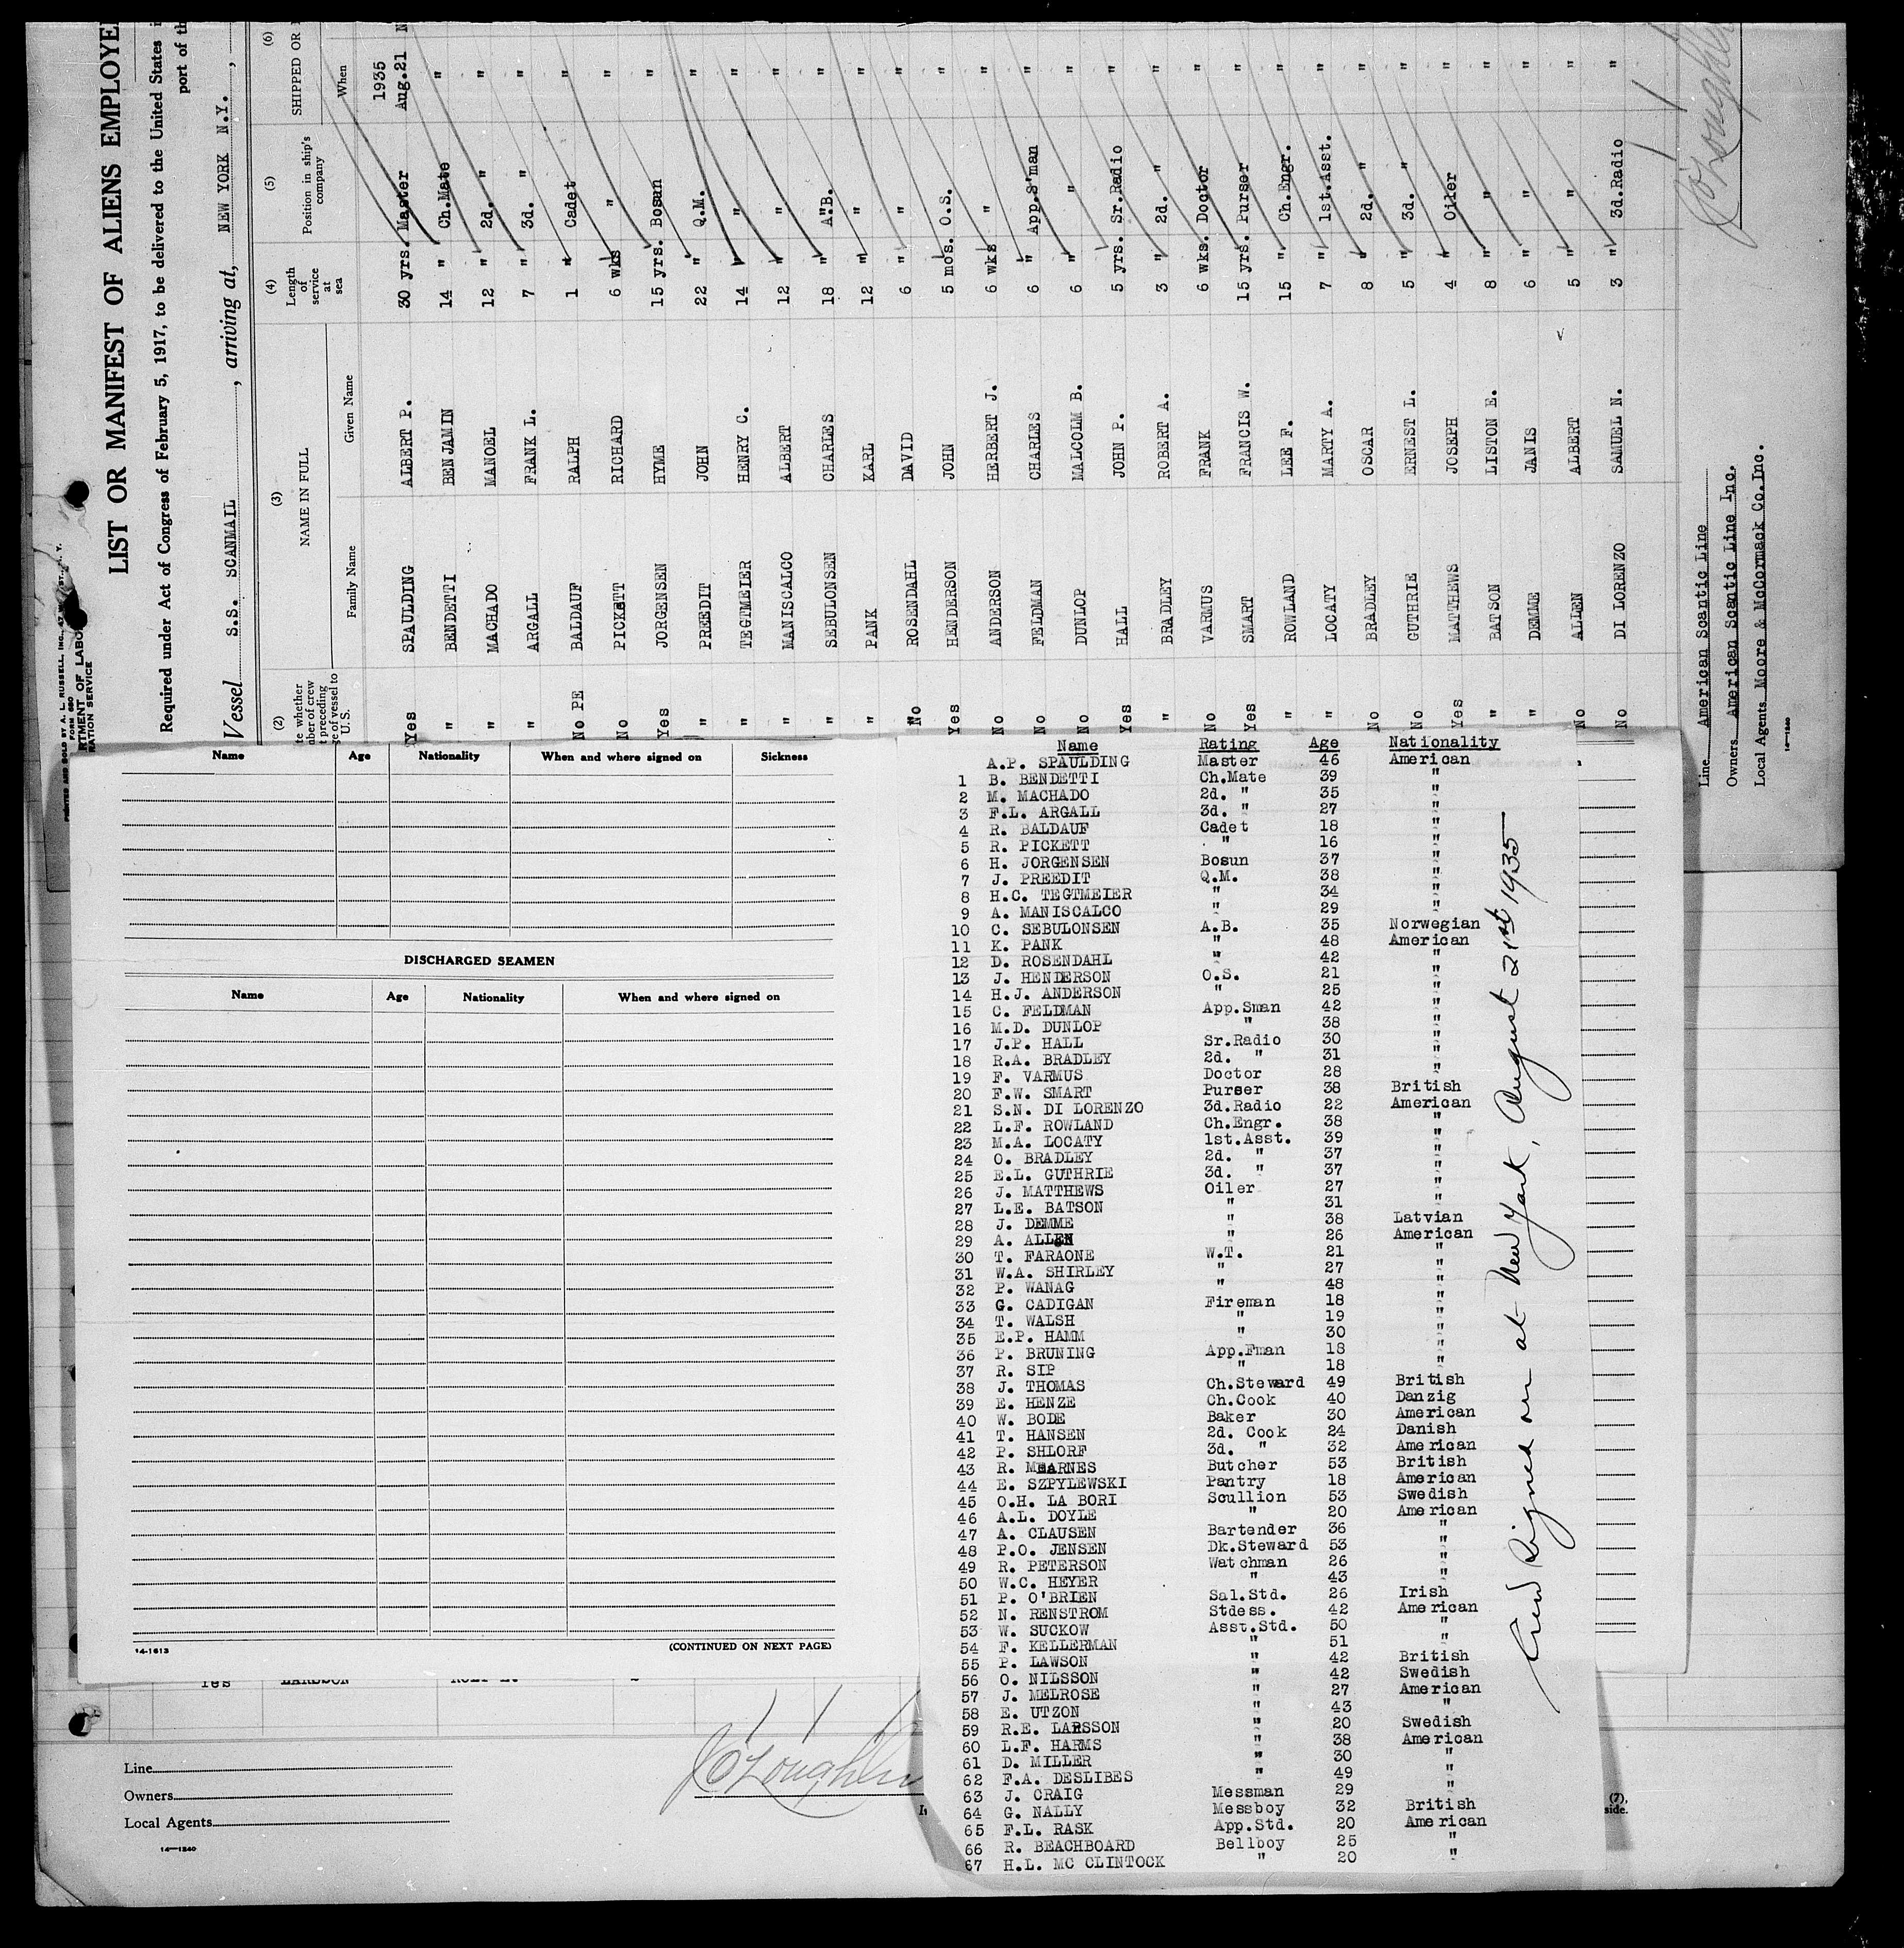 PRINTED AND SOLD BY A. L. RUSSELL, INC.,
FORM 680
RTMENT OF LABO
RATION SERVICE
LIST OR MANIFEST OF ALIENS EMPLOYE
Required under Act of Congress of February 5, 1917, to be delivered to the United States i
port of th
Vessel S.S. SCANMAIL, arriving at, NEW YORK N.Y.,
(2) (3) (4) (5) (6)
te whether
mber of crew
t preceding
ge of vessel to
U.S.
NAME IN FULL
Family Name Given Name
Length
of
service
at
sea
Position in ship's
company
SHIPPED OR
When
1935
Yes SPAULDING ALBERT P. 30 yrs. Master Aug.21 N
" BENDETTI BENJAMIN 14 " Ch.Mate "
" MACHADO MANOEL 12 " 2d. " "
" ARGALL FRANK L. 7 " 3d. " "
No PE BALDAUF RALPH 1 " Cadet "
No PICKETT RICHARD 6 wks " "
Yes JORGENSEN HYME 15 yrs. Bosun "
" PREEDIT JOHN 22 " Q.M. "
" TEGTMEIER HENRY C. 14 " " "
" MANISCALCO ALBERT 12 " " "
" SEBULONSEN CHARLES 18 " A.B. "
" PANK KARL 12 " " "
No ROSENDAHL DAVID 6 " " "
Yes HENDERSON JOHN 5 mos. O.S. "
No ANDERSON HERBERT J. 6 wks " "
No FELDMAN CHARLES 6 " App.S'man "
No DUNLOP MALCOLM B. 6 " " "
Yes HALL JOHN P. 5 yrs. Sr.Radio "
" BRADLEY ROBERT A. 3 " 2d. " "
No VARMUS FRANK 6 wks. Doctor "
Yes SMART FRANCIS W. 15 yrs. Purser "
" ROWLAND LEE F. 15 " Ch.Engr. "
" LOCATY MARTY A. 7 " 1st.Asst. "
No BRADLEY OSCAR 8 " 2d. " "
No GUTHRIE ERNEST L. 5 " 3d. " "
Yes MATTHEWS JOSEPH 4 " Oiler "
" BATSON LISTON E. 8 " " "
" DEMME JANIS 6 " " "
No ALLEN ALBERT 5 " " "
No DI LORENZO SAMUEL N. 3 " 3d.Radio "
Line American Scantic Line
Owners American Scantic Line Inc.
Local Agents Moore & McCormack Co.Inc.
14—1240
Name Age Nationality When and where signed on Sickness
DISCHARGED SEAMEN
Name Age Nationality When and where signed on
14-1613 (CONTINUED ON NEXT PAGE)
Name Rating Age Nationality
A.P. SPAULDING Master 46 American
1 B. BENDETTI Ch.Mate 39 "
2 M. MACHADO 2d. " 35 "
3 F.L. ARGALL 3d. " 27 "
4 R. BALDAUF Cadet 18 "
5 R. PICKETT " 16 "
6 H. JORGENSEN Bosun 37 "
7 J. PREEDIT Q.M. 38 "
8 H.C. TEGTMEIER " 34 "
9 A. MANISCALCO " 29 "
10 C. SEBULONSEN A.B. 35 Norwegian
11 K. PANK " 48 American
12 D. ROSENDAHL " 42 "
13 J. HENDERSON O.S. 21 "
14 H.J. ANDERSON " 25 "
15 C. FELDMAN App.Sman 42 "
16 M.D. DUNLOP " 38 "
17 J.P. HALL Sr.Radio 30 "
18 R.A. BRADLEY 2d. " 31 "
19 F. VARMUS Doctor 28 "
20 F.W. SMART Purser 38 British
21 S.N. DI LORENZO 3d.Radio 22 American
22 L.F. ROWLAND Ch.Engr. 38 "
23 M.A. LOCATY 1st.Asst. 39 "
24 O. BRADLEY 2d. " 37 "
25 E.L. GUTHRIE 3d. " 37 "
26 J. MATTHEWS Oiler 27 "
27 L.E. BATSON " 31 "
28 J. DEMME " 38 Latvian
29 A. ALLEN " 26 American
30 T. FARAONE W.T. 21 "
31 W.A. SHIRLEY " 27 "
32 P. WANAG " 48 "
33 G. CADIGAN Fireman 18 "
34 T. WALSH " 19 "
35 E.P. HAMM " 30 "
36 P. BRUNING App.Fman 18 "
37 R. SIP " 18 "
38 J. THOMAS Ch.Steward 49 British
39 E. HENZE Ch.Cook 40 Danzig
40 W. BODE Baker 30 American
41 T. HANSEN 2d. Cook 24 Danish
42 P. SHLORF 3d. " 32 American
43 R. MEARNES Butcher 53 British
44 E. SZPYLEWSKI Pantry 18 American
45 O.H. LA BORI Scullion 53 Swedish
46 A.L. DOYLE " 20 American
47 A. CLAUSEN Bartender 36 "
48 P.O. JENSEN Dk.Steward 53 "
49 R. PETERSON Watchman 26 "
50 W.C. HEYER " 43 "
51 P. O'BRIEN Sal.Std. 26 Irish
52 N. RENSTROM Stdess. 42 American
53 W. SUCKOW Asst.Std. 50 "
54 F. KELLERMAN " 51 "
55 P. LAWSON " 42 British
56 O. NILSSON " 42 Swedish
57 J. MELROSE " 27 American
58 E. UTZON " 43 "
59 R.E. LARSSON " 20 Swedish
60 L.F. HARMS " 38 American
61 D. MILLER " 30 "
62 F.A. DESLIBES " 49 "
63 J. CRAIG Messman 29 "
64 G. NALLY Messboy 32 British
65 F.L. RASK App.Std. 20 American
66 R. BEACHBOARD Bellboy 25 "
67 H.L. MC CLINTOCK " 20 "
Crew signed on at New York, August 21st 1935
Yes LARSSON
Line
Owners
Local Agents
14—1240
(7),
side.